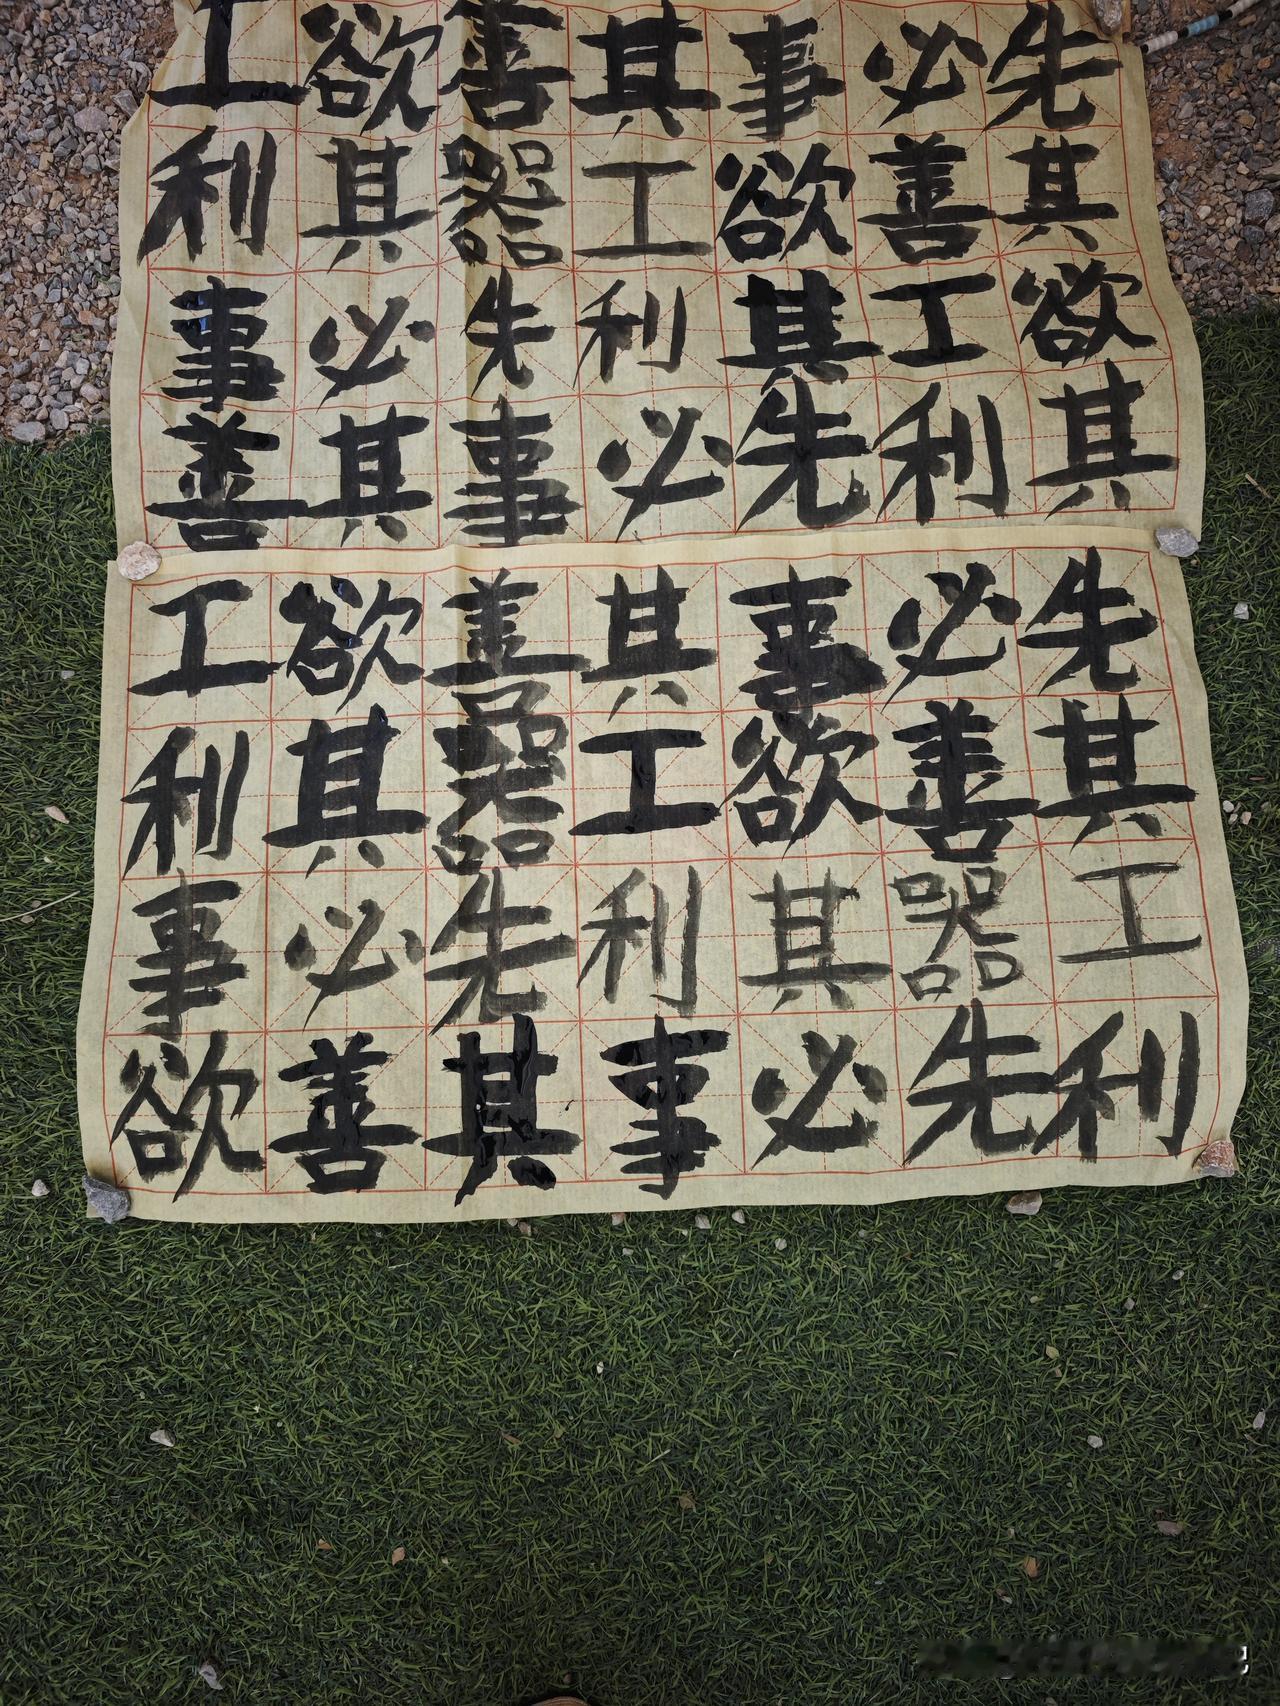 工欲善其事必先
利其器工欲善其
事必先利其工欲
善其事必先利其
工欲善其事必先
利其器工欲善其
事必先利其器工
欲善其事必先利